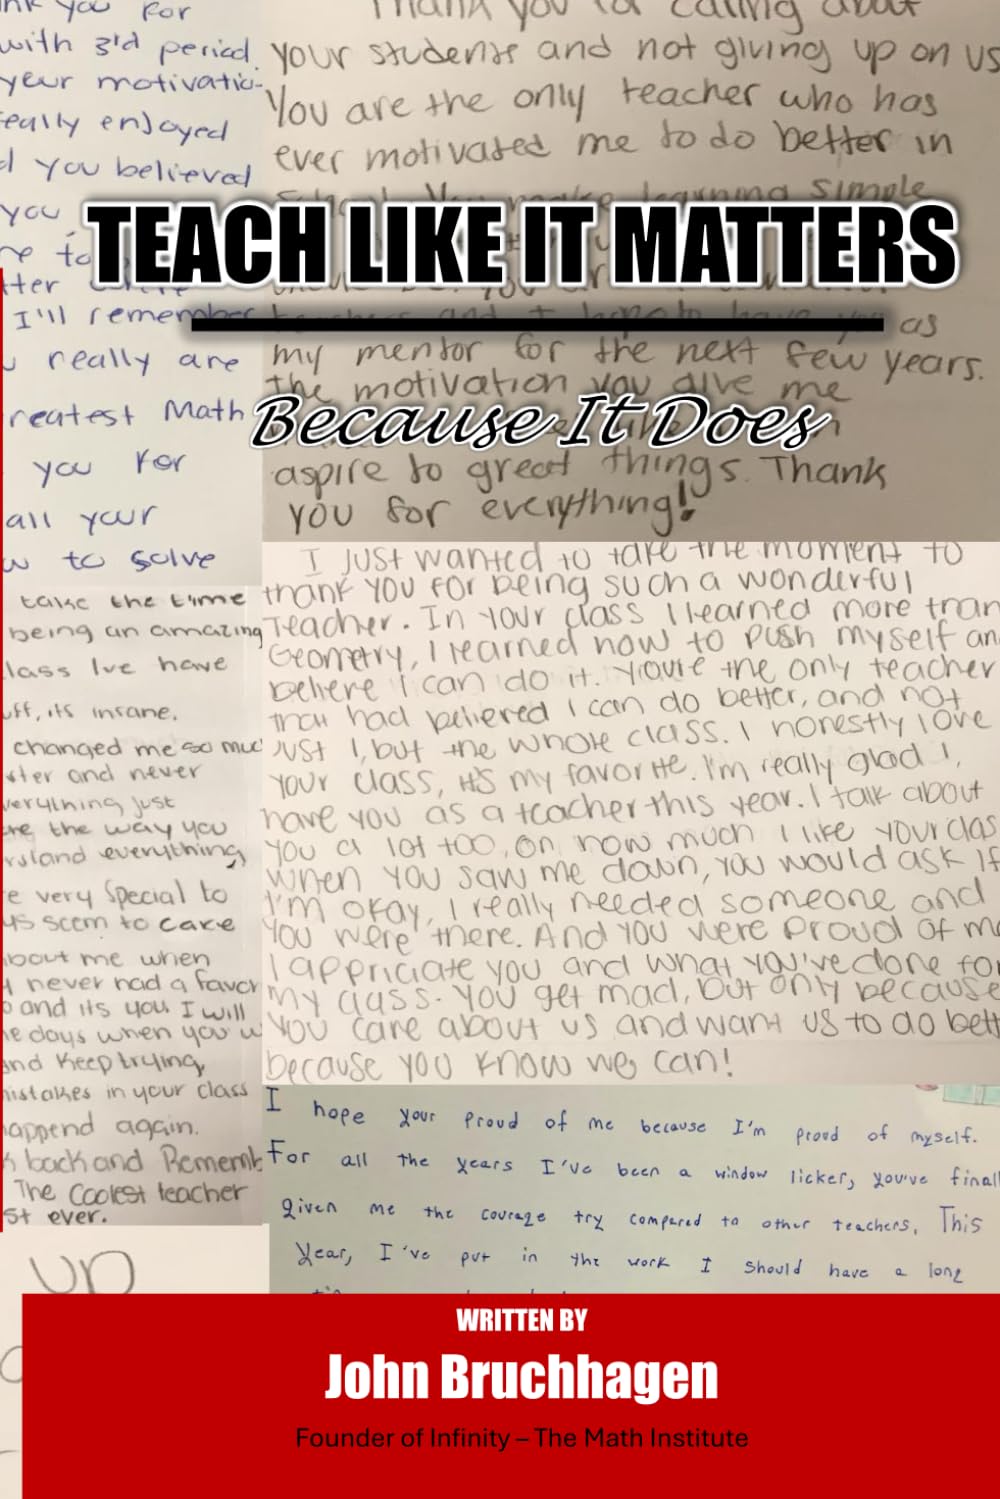 TEACH LIKE IT MATTERS
Because It Does
nk you for
with 3'd period.
your motivatio-
eally enjoyed
d you believed
you
re to
tter
I'll remember
really are
reatest Math
you for
all your
w to solve
Thank you for caring about
your students and not giving up on us
You are the only teacher who has
ever motivated me to do better in
learning simple
as
my mentor for the next few years.
the motivation you give me
aspire to great things. Thank
you for everything!
take the time
being an amazing
lass Ive have
uff, its insane.
changed me so muc
ster and never
verything just
are the way you
rstand everything,
e very special to
ys seem to care
about me when
I never had a favor
o and its you. I will
he days when you w
and keep trying,
mistakes in your class
append again.
k back and Rememb
The Coolest teacher
st ever.
I just wanted to take the moment to
thank you for being such a wonderful
Teacher. In your class I learned more than
Geometry, I learned how to push myself an
believe I can do it. You're the only teacher
that had believed I can do better, and not
Just I, but the whole class. I honestly love
your class, it's my favorite. I'm really glad I,
have you as a teacher this year. I talk about
you a lot too, on how much I like your clas
When you saw me down, you would ask if
I'm okay, I really needed someone and
you were there. And you were proud of m
I appriciate you and what you've done for
my class. You get mad, but only because
you care about us and want us to do bett
because you know we can!
I hope your proud of me because I'm proud of myself.
For all the years I've been a window licker, you've finall
given me the courage try compared to other teachers. This
Year, I've put in the work I should have a long
UP
WRITTEN BY
John Bruchhagen
Founder of Infinity – The Math Institute